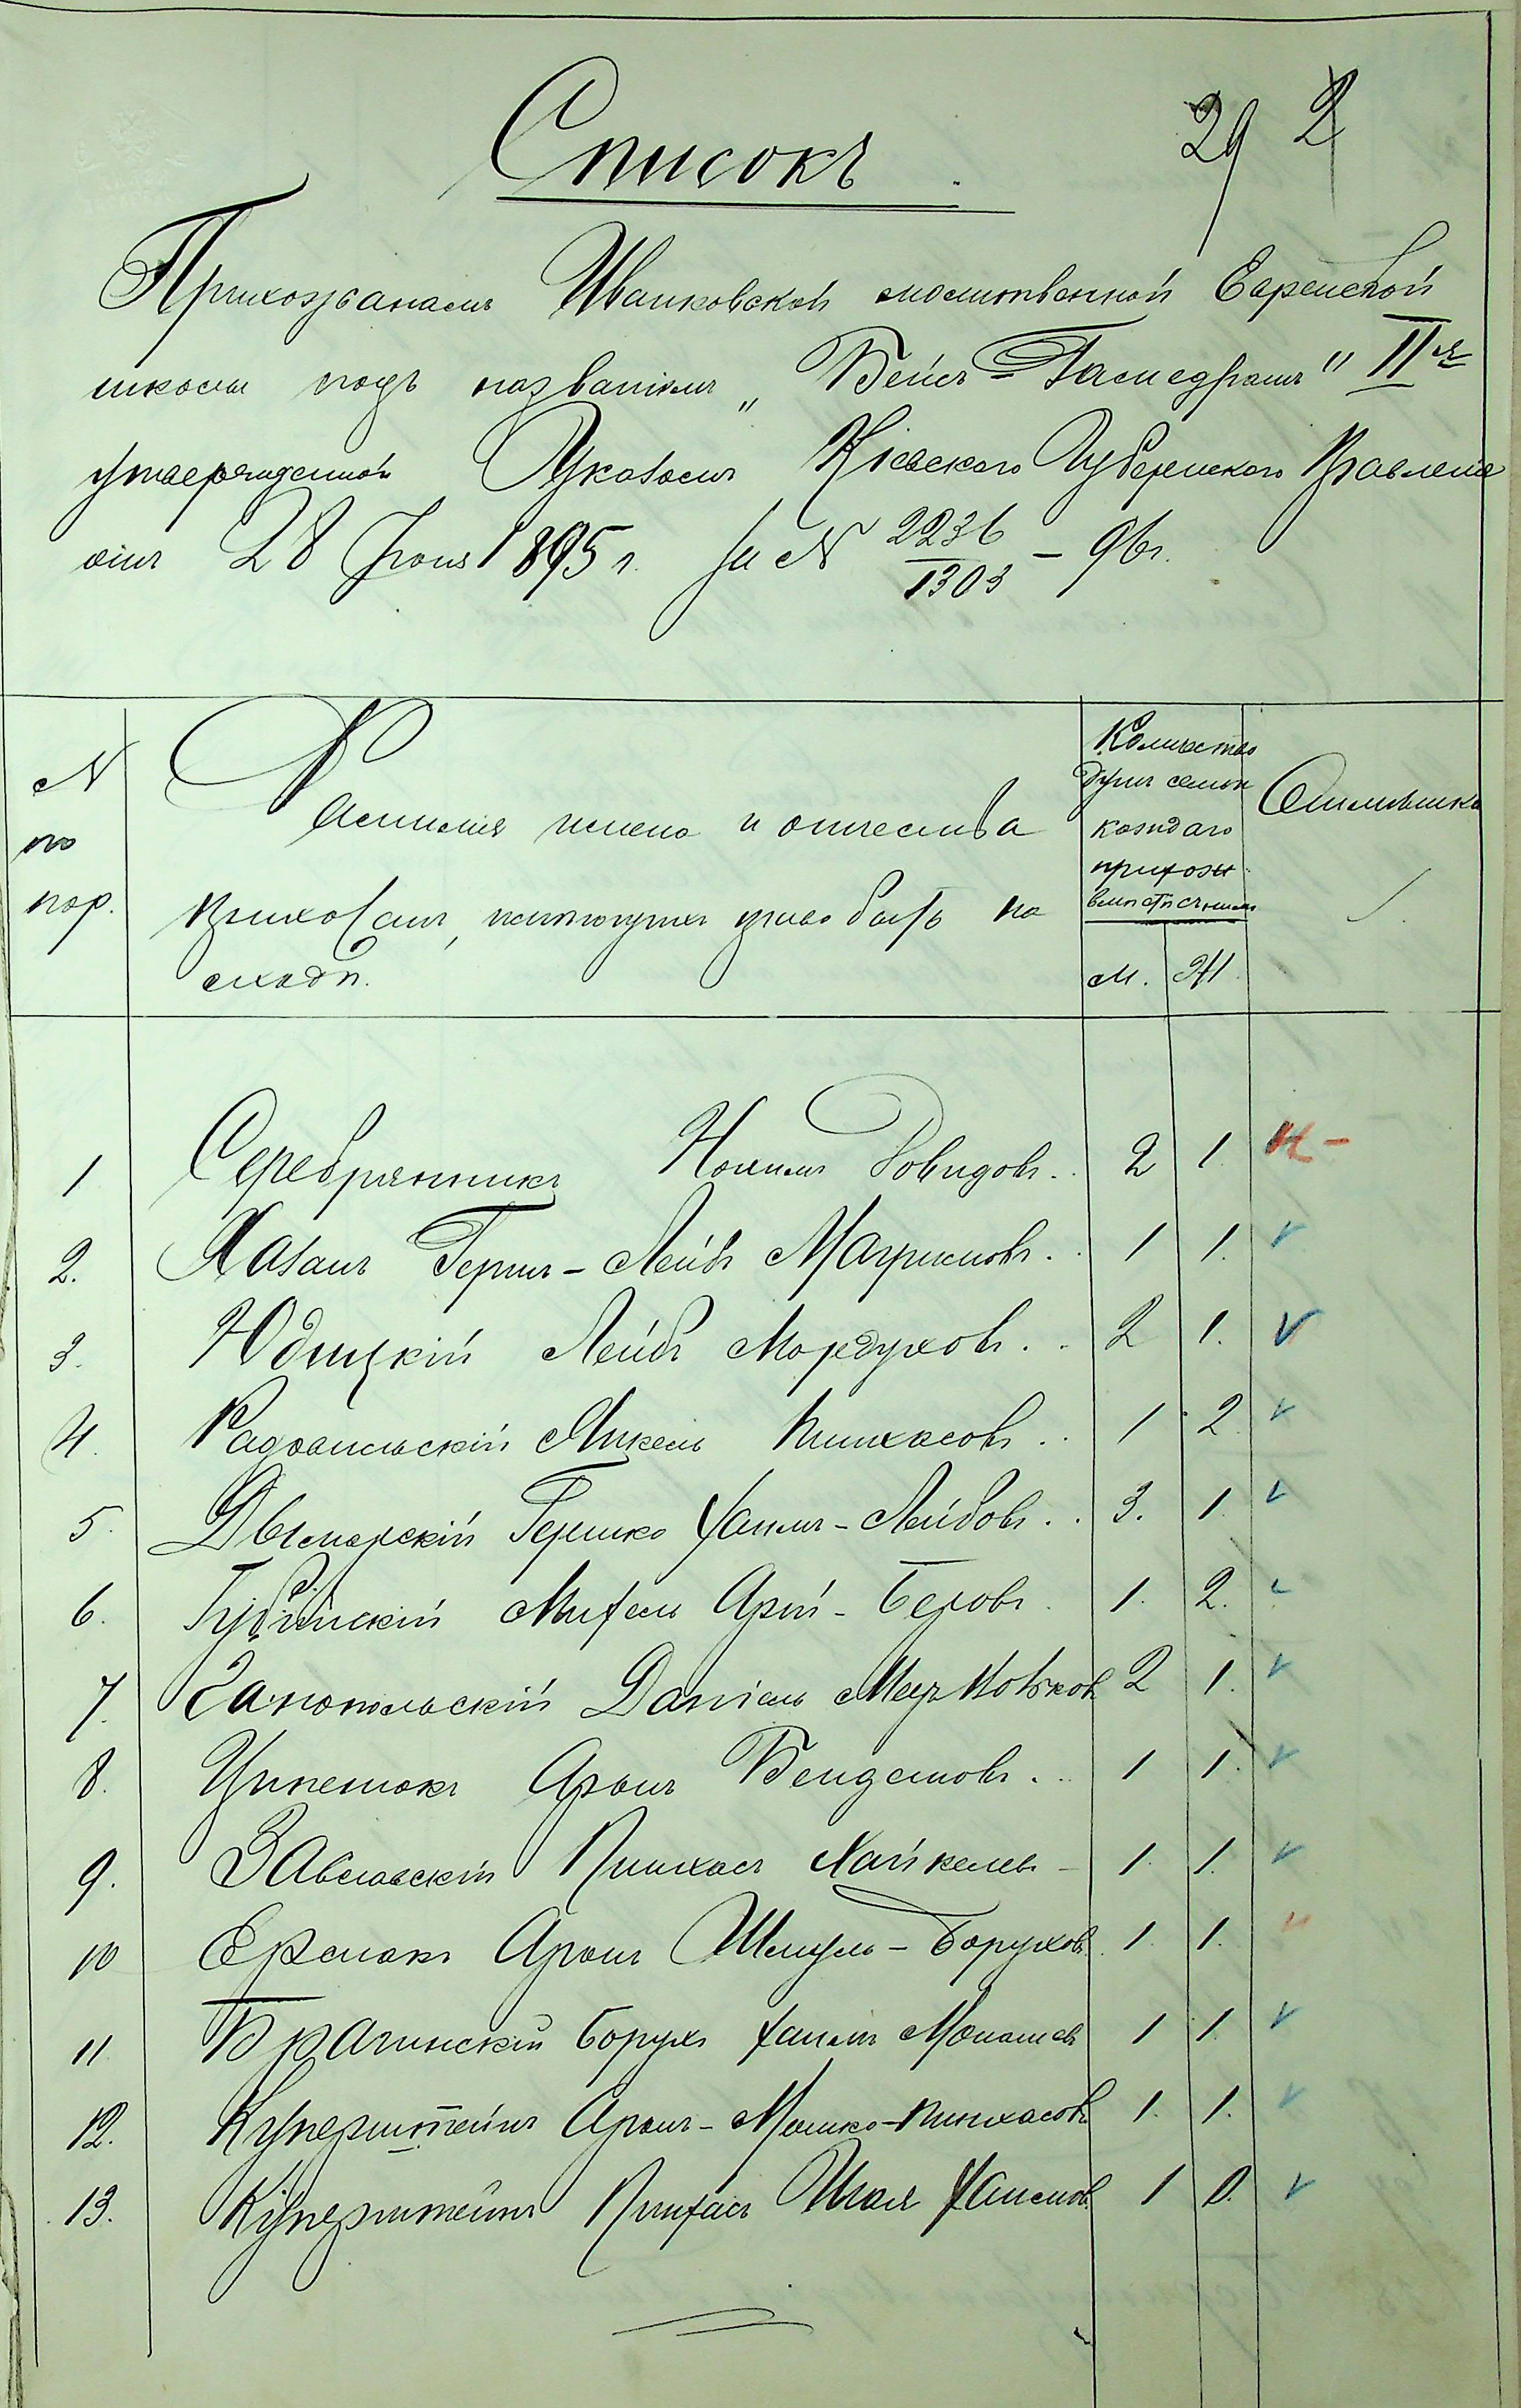 Списокъ
29 2
Прихожанамъ Иванковской молитвенной Еврейской
школы подъ названіемъ „Бейсъ-Гамедрашъ" II я
утвержденной Указомъ Кіевскаго Губернскаго Правленія
отъ 28 Іюня 1895 г. за № 2236/1303 – 96 г.
№ по пор.
Фамилія имена и отчества
прихожанъ, имеющихъ право быть на
сходѣ.
Количество
душъ семьи
каждаго
прихож.
вмѣстѣ съ нимъ
М. Ж.
Отмѣтка
1 Серебрянникъ Нохимъ Довидовъ .. 2 1. н –
2. Хазанъ Гершъ-Лейбъ Мошковъ .. 1 1. v
3. Юдицкій Лейбъ Мордуховъ .. 2 1. v
4. Радомысльскій Янкель Пинхасовъ .. 1 2 v
5. Дымарскій Гершко Хаимъ-Лейбовъ .. 3. 1 v
6. Губинскій Михель Арій-Беровъ . 1. 2. v
7. Чанопольскій Даніель Меер Мовшков 2 1. v
8. Аронъ 1 1. v
9. Заславскій Пинхасъ Хайкелевъ – 1. 1. v
10 Ермакъ Аронъ Шмуль-Боруховъ 1. 1. н
11 Брагинскій Борухъ Хаимъ Монашевъ 1 1. v
12. Куперштейнъ Аронъ-Мошко-Пинхасовъ 1. 1. v
13. Куперштейнъ Пинхасъ Шая Хаимовъ 1 0. v